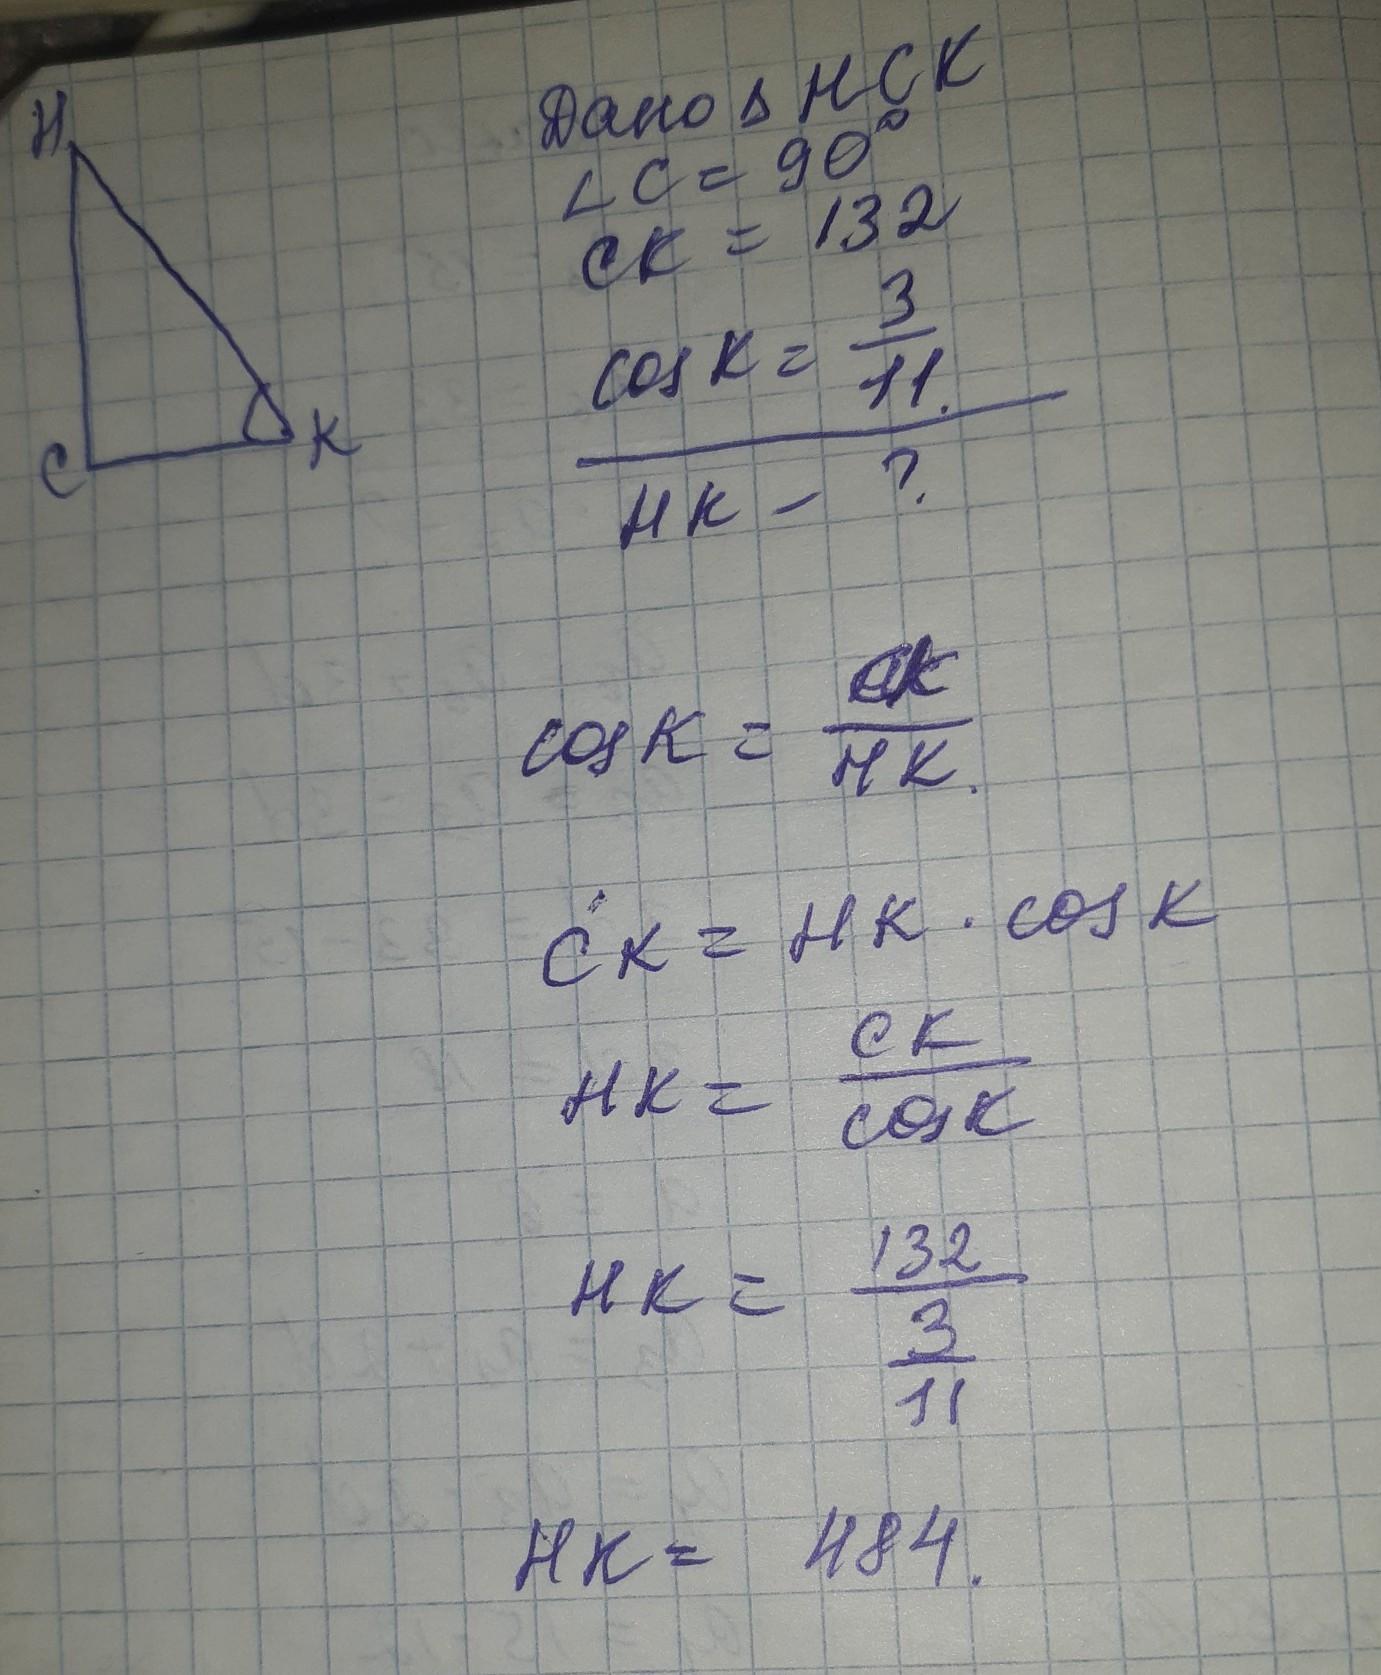 H
C
K
Дано Δ HCK
∠C = 90°
CK = 132
cos K = 3/11.
HK - ?
cos K = CK/HK.
CK = HK · cos K
HK = CK/cos K
HK = 132/(3/11)
HK = 484.